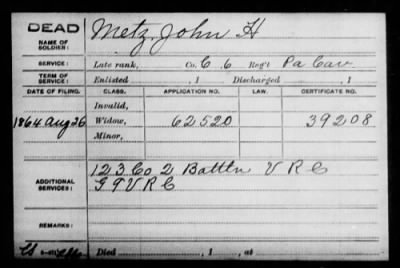 DEAD
NAME OF SOLDIER: Metz, John H
SERVICE: Late rank, Co. C. 6 Reg't Pa Cav
TERM OF SERVICE: Enlisted , 1 Discharged , 1
DATE OF FILING. CLASS. APPLICATION NO. LAW. CERTIFICATE NO.
Invalid,
1864 Aug 26 Widow, 62520 39208
Minor,
ADDITIONAL SERVICES: 123 Co 2 Battln V R C
G 7 V R C
REMARKS:
Died , 1 , at